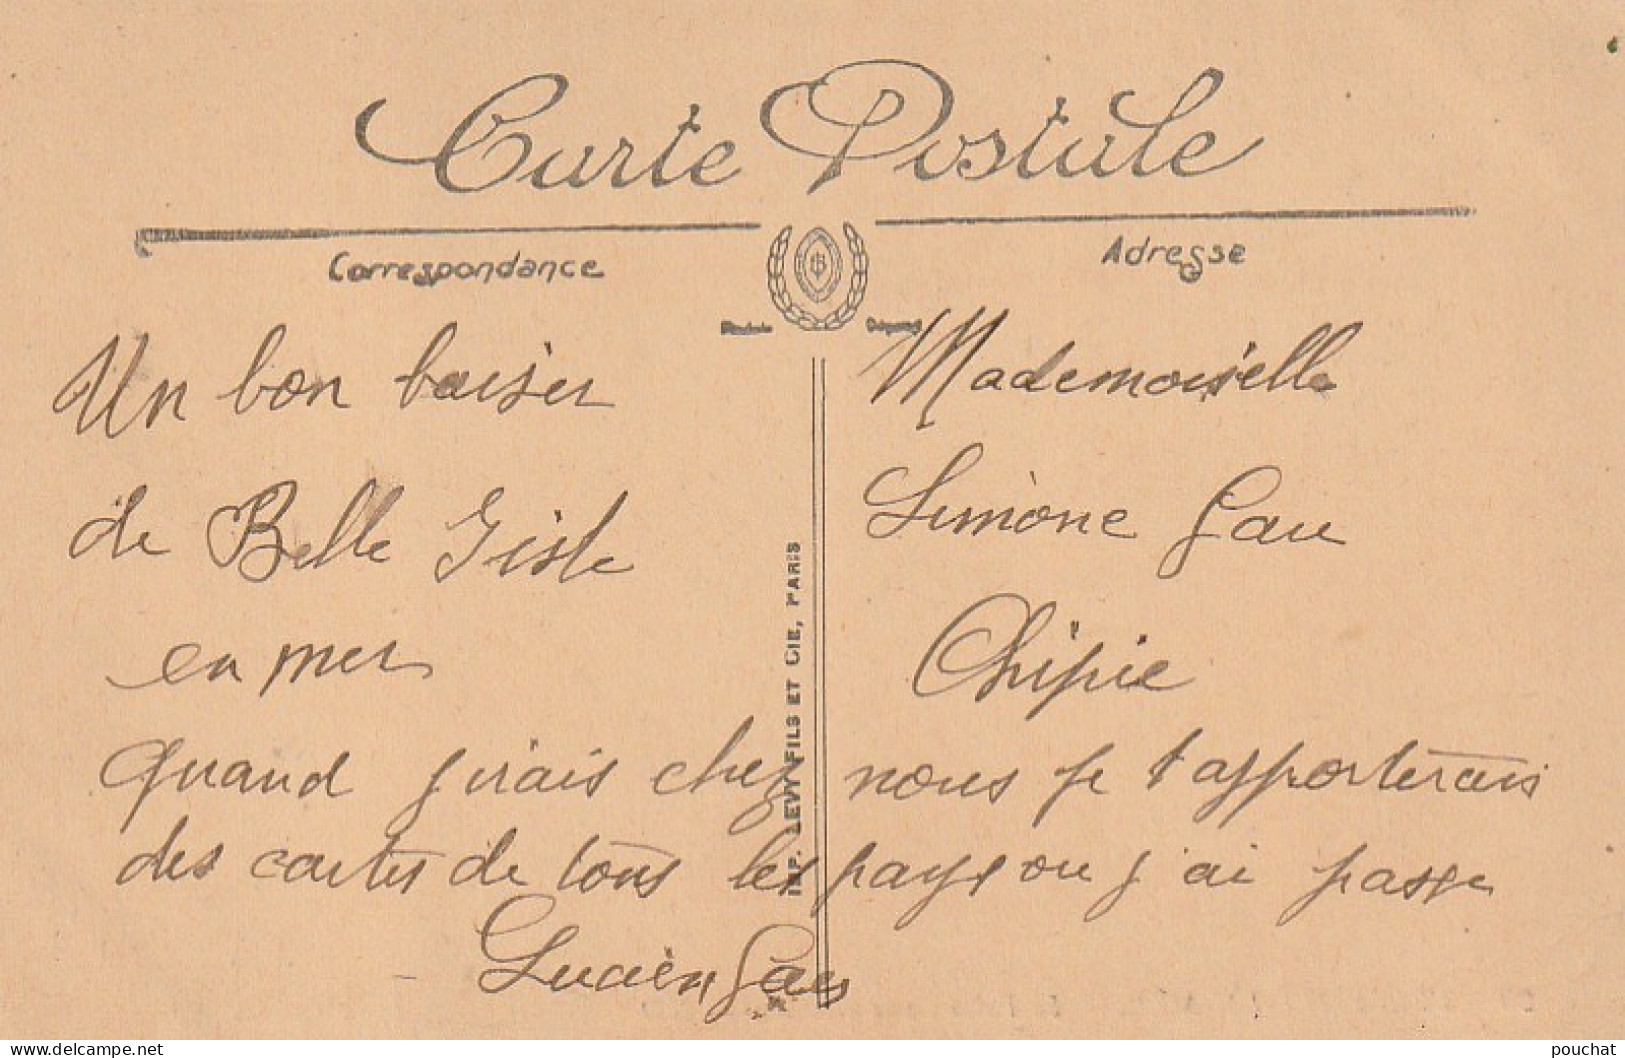 Carte Postale
Correspondance
Adresse
Un bon baiser
de Belle Jisle
en mer
Mademoiselle
Simone Gau
Chipie
quand j'irais chez nous je t apporterais
des cartes de tous les pays ou j'ai passe
Lucien Gau
IMP. LEVY FILS ET CIE, PARIS
pouchat